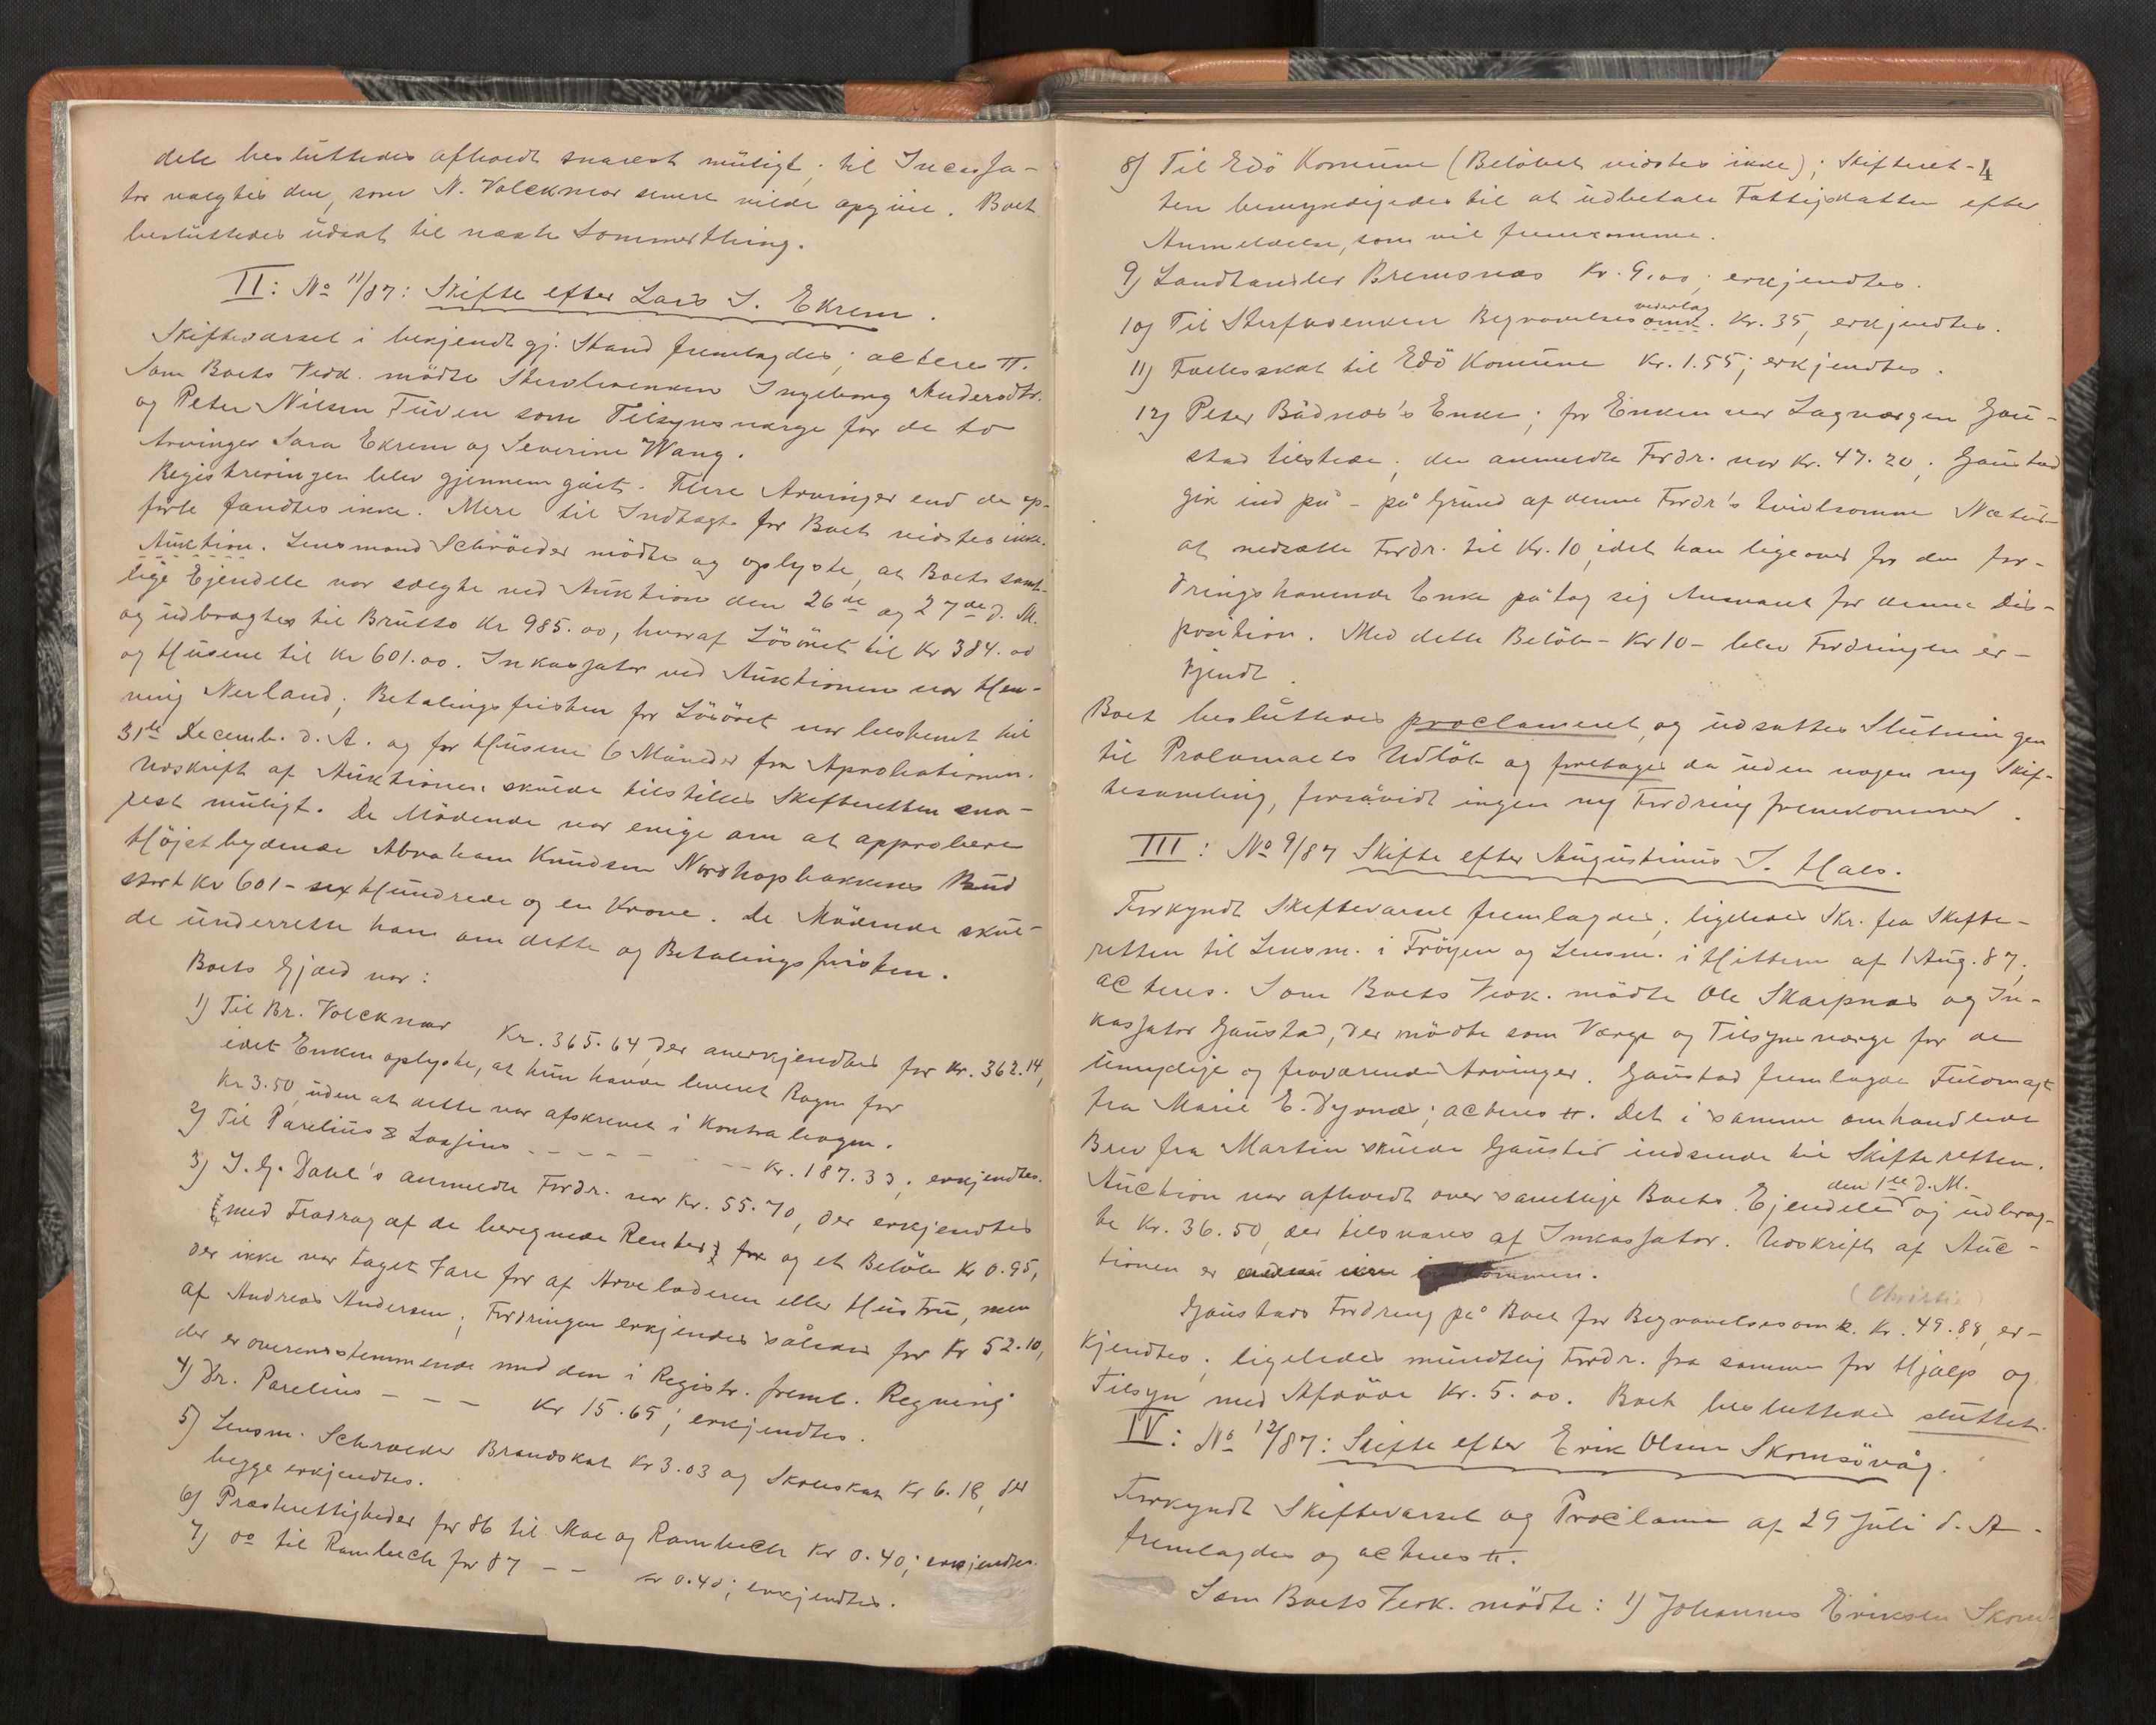 dele besluttedes afholdt snarest muligt; til Incassa-
tor valgtes den, som N. Volckmar senere vilde opgive. Boet
besluttedes udsat til næste Sommerthing.
II: No 11/87: Skifte efter Lars J. Ekrem.
Skiftevarsel i bekjendtgj. Stand fremlagdes; acteres #.
Som Boets Vedk. mödte Stervboenken Ingeborg Andersdtr.
og Peter Nilsen Tuven som Tilsynsværge for de to
Arvinger Sara Ekrem og Severine Wang.
Registreringen blev gjennemgået. Flere Arvinger end de op-
förte fandtes ikke. Mere til Indtægt for Boet vidstes ikke.
Auktion. Lensmand Schröeder mödte og oplyste, at Boets samt-
lige Ejendele var solgte ved Auktion den 26de og 27de d. M.
og udbragtes til Brutto Kr 985.00, hvoraf Lösöret til Kr 384.00
og Husene til Kr 601.00. Inkassator ved Auktionen var Hen-
ning Nerland; Betalingsfristen for Lösöret var bestemt til
31te Decemb. d. A. og for Husene 6 Måneder fra Aprobationen.
Udskrift af Auktionen skulde tilstilles Skifteretten sna-
rest muligt. De Mödende var enige om at approbere
Höjstbydende Abraham Knudsen Nordhopbakkens Bud
stort Kr 601 - sex Hundrede og en Krone. De Mödende skul-
de underrette ham om dette og Betalingsfristen.
Boets Gjæld var:
1) Til Br. Volckmar Kr. 365.64, der anerkjendtes for Kr. 362.14,
idet Enken oplyste, at hun havde leveret Rogn for
Kr 3.50, uden at dette var afskrevet i Kontrabogen.
2) Til Parelius & Lossius - - - - - - Kr. 187.33; erkjendtes.
3) J. G. Dahl's anmeldte Fordr. var Kr. 55.70, der erkjendtes
med Fradrag af de beregnede Renter for og et Belöb Kr 0.95,
der ikke var taget Vare for af Arveladeren eller Hustru, men
af Andreas Andersen; Fordringen erkjendes således for Kr 52.10,
der er overensstemmende med den i Registr. freml. Regning
4) Dr. Parelius - - - Kr 15.65; erkjendtes.
5) Lensm. Schroeder Brandskat Kr 3.03 og Skoleskat Kr 6.18, der
begge erkjendtes.
6) Præsterettigheder for 86 til Moe og Rambech Kr 0.40; erkjendtes.
7) do til Rambech for 87 - - Kr 0.40; erkjendtes.
4
8) Til Edö Komune (Belöbet vidstes ikke); Skifteret-
ten bemyndigedes til at udbetale Fattigskatten efter
Anmeldelse, som vil fremkomme.
9) Landhandler Bremsnæs Kr. 9.00; erkjendtes.
10) Til Stervboenken Begravelses omk. Kr. 35, erkjendtes.
11) Fællesskat til Edö Komune Kr. 1.55; erkjendtes.
12) Peter Bådnæs's Enke; for Enken var Lagværgen Gau-
stad tilstede; den anmeldte Fordr. var Kr. 47.20; Gaustad
gik ind på - på Grund af denne Fordr's tvivlsomme Natur -
at nedsætte Fordr. til Kr. 10, idet han ligeover for den for-
dringshavende Enke påtog sig Ansvaret for denne Dis-
position. Med dette Belöb - Kr 10 - blev Fordringen er-
kjendt.
Boet besluttedes proclameret, og udsattes Slutningen
til Proclamaets Udlöb og foretages da uden nogen ny Skif-
tesamling, forsåvidt ingen ny Fordring fremkommer.
III: No 9/87 Skifte efter Augustinus J. Hals.
Forkyndt Skiftevarsel fremlagdes; ligeledes Skr. fra Skifte-
retten til Lensm. i Fröyen og Lensm. i Hittern af 1 Aug. 87;
acteres. Som Boets Vedk. mödte Ole Skarpnæs og In-
kassator Gaustad, der mödte som Værge og Tilsynsværge for de
umyndige og fraværende Arvinger. Gaustad fremlagde Fuldmagt
fra Marie E. Dyrnæs; acteres #. Det i samme omhandlede
Brev fra Martin skulde Gaustad indsende til Skifteretten.
Auction var afholdt over samtlige Boets Ejendele den 1te d. M. og udbrag-
te Kr. 36.50, der tilsvares af Inkassator. Udskrift af Auc-
tionen er endnu ikke indkommen.
(Christie)
Gaustads Fordring på Boet for Begravelsesomk. Kr. 49.88, er-
kjendtes; ligeledes mundtlig Fordr. fra samme for Hjælp og
Tilsyn med Afdöde Kr. 5.00. Boet besluttedes sluttet.
IV: No 12/87: Skifte efter Erik Olsen Skomsövåg.
Forkyndt Skiftevarsel og Proclama af 29 Juli d. A.
fremlagdes og acteres #.
Som Boets Vedk. mödte: 1) Johannes Eriksen Skom